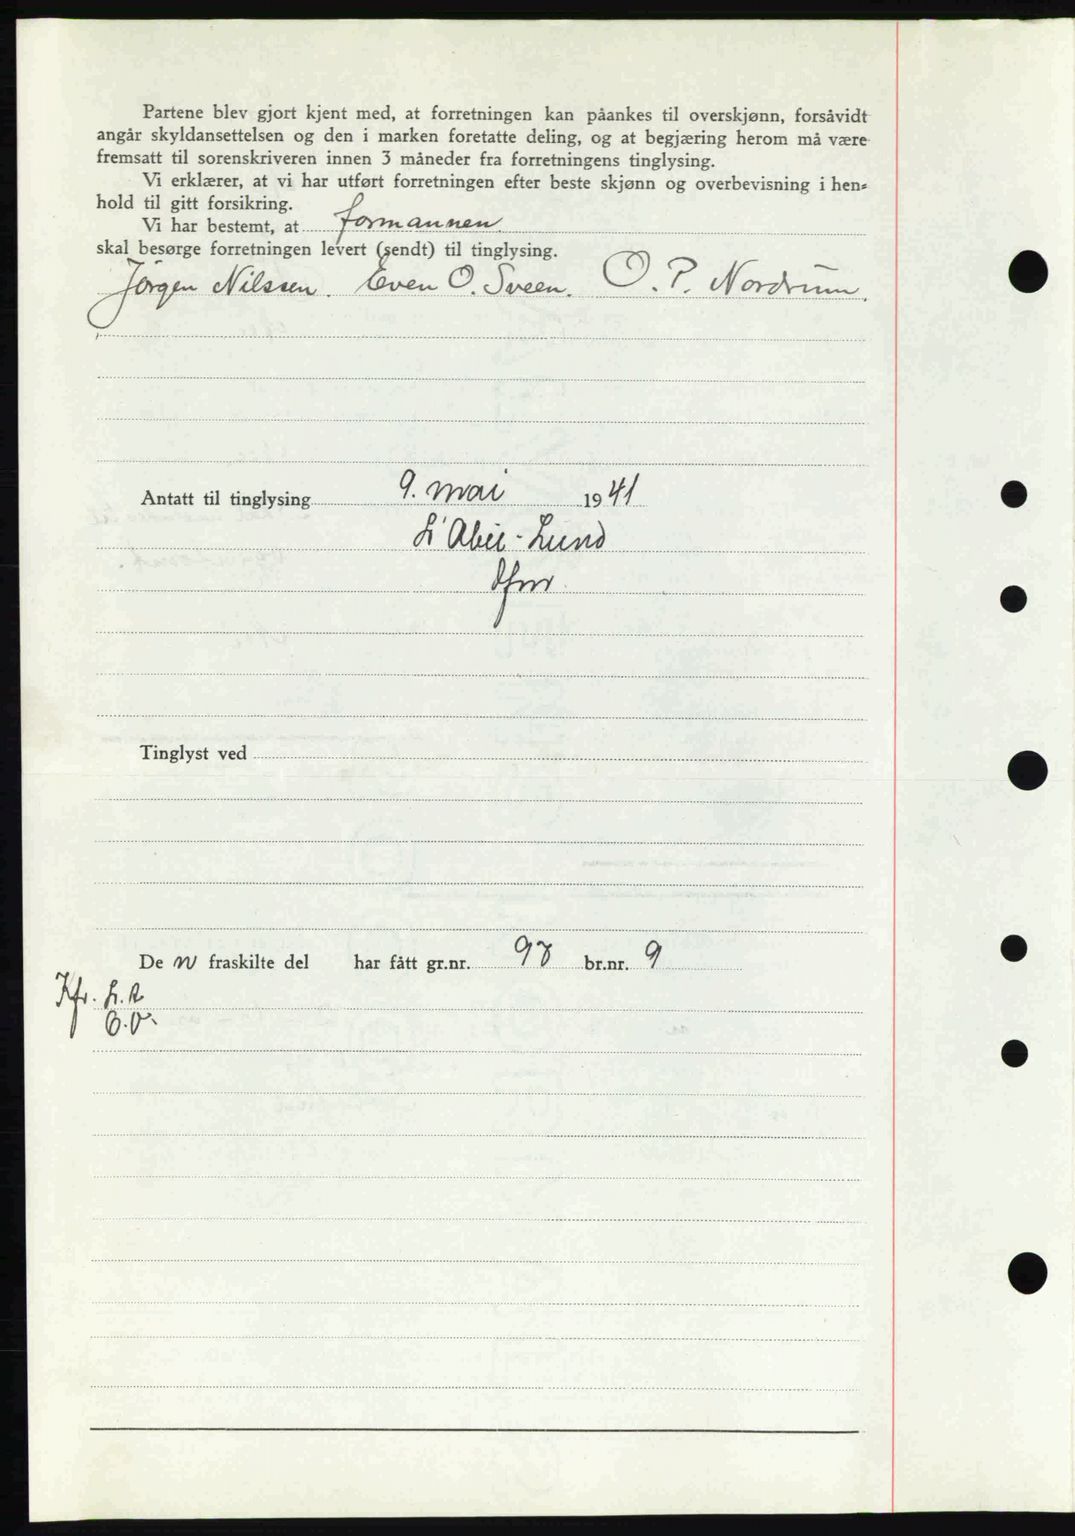 Partene blev gjort kjent med, at forretningen kan påankes til overskjønn, forsåvidt
angår skyldansettelsen og den i marken foretatte deling, og at begjæring herom må være
fremsatt til sorenskriveren innen 3 måneder fra forretningens tinglysing.
Vi erklærer, at vi har utført forretningen efter beste skjønn og overbevisning i hen=
hold til gitt forsikring.
Vi har bestemt, at formannen
skal besørge forretningen levert (sendt) til tinglysing.
Jørgen Nilssen. Even O. Sveen. O. P. Nordrum.
Antatt til tinglysing 9. mai 1941
Lund
Tinglyst ved
De n fraskilte del har fått gr.nr. 98 br.nr. 9
Kfr. L.A